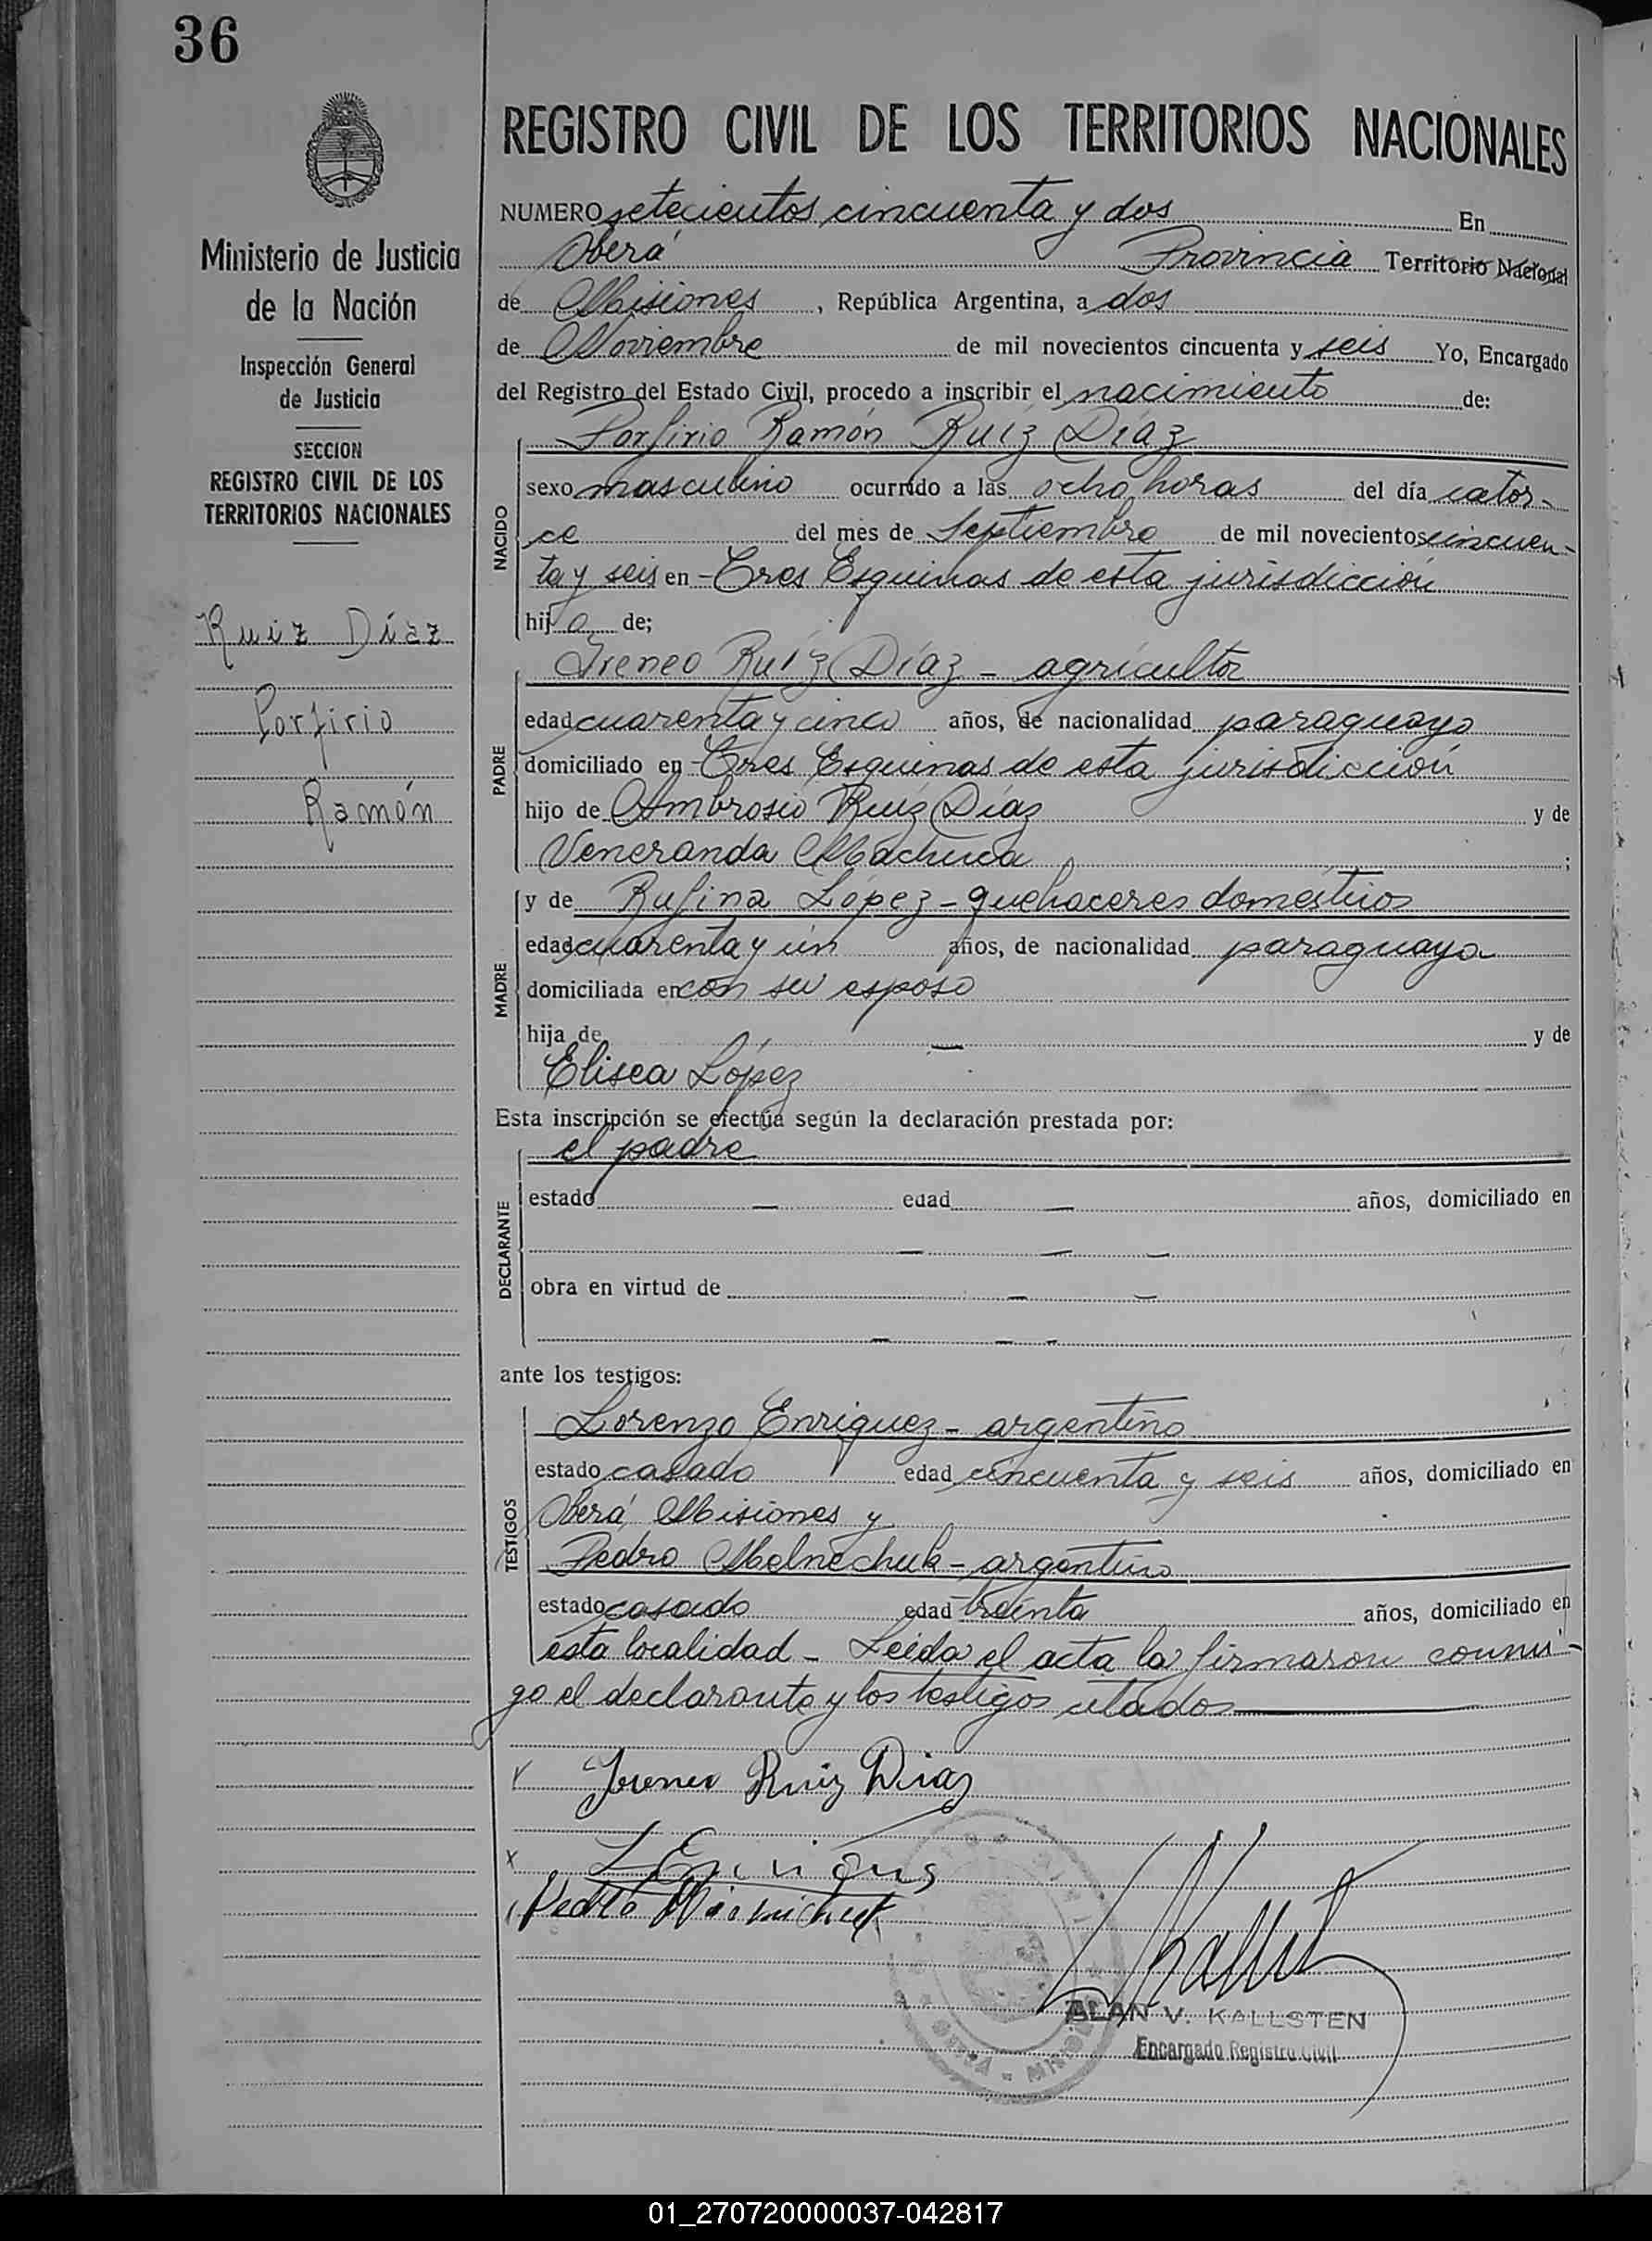 36
REGISTRO CIVIL DE LOS TERRITORIOS NACIONALES
Ministerio de Justicia
de la Nación
Inspección General
de Justicia
SECCION
REGISTRO CIVIL DE LOS
TERRITORIOS NACIONALES
Ruiz Díaz
Porfirio
Ramón
NUMERO setecientos cincuenta y dos En
Oberá Provincia Territorio Nacional
de Misiones, República Argentina, a dos
de Noviembre de mil novecientos cincuenta y seis Yo, Encargado
del Registro del Estado Civil, procedo a inscribir el nacimiento de:
Porfirio Ramón Ruíz Díaz
NACIDO
sexo masculino ocurrido a las ocho horas del día cator-
ce del mes de Septiembre de mil novecientos cincuen-
ta y seis en - Tres Esquinas de esta jurisdicción
hijo de;
Ireneo Ruíz Díaz - agricultor
PADRE
edad cuarenta y cinco años, de nacionalidad paraguayo
domiciliado en - Tres Esquinas de esta jurisdicción
hijo de Ambrosio Ruíz Díaz y de
Veneranda Machuca ;
y de Rufina López - quehaceres domésticos
MADRE
edad cuarenta y un años, de nacionalidad paraguaya
domiciliada en con su esposo
hija de — y de
Elisea López
Esta inscripción se efectúa según la declaración prestada por:
el padre
DECLARANTE
estado — edad — años, domiciliado en
— — —
obra en virtud de — —
— — —
ante los testigos:
Lorenzo Enriquez - argentino
TESTIGOS
estado casado edad cincuenta y seis años, domiciliado en
Oberá, Misiones y
Pedro Melnechuk - argentino
estado casado edad treinta años, domiciliado en
esta localidad - Leida el acta la firmaron conmi-
go el declarante y los testigos citados
Ireneo Ruiz Diaz
Pedro
ALAN V. KALLSTEN
Encargado Registro Civil
01_270720000037-042817